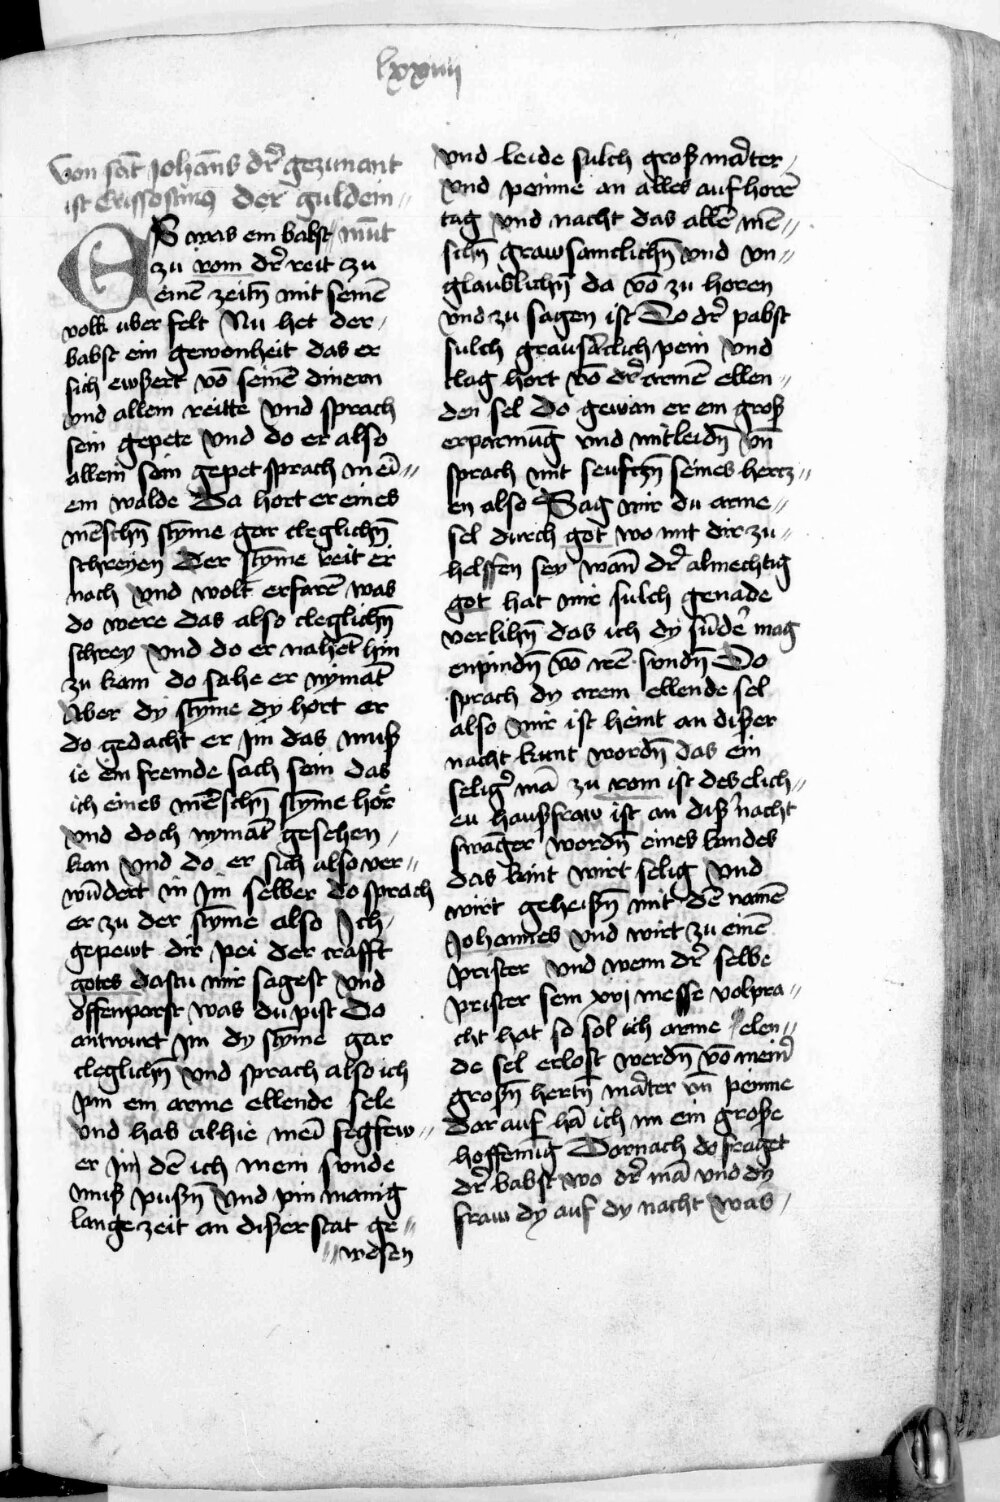 lxxiiij
Von sāt Johāns dr̄ gezunant
ist Crissostim9 der guldein〃
ES was ein babst / mūt
zu rom dr̄ reit zu
einē zeitn̄ mit seinē
volk uber felt Nu het der /
babst ein gewonheit das er
sich ewsert vō seinē dinern
vnd allem reitte Vnd sprach
sein gepete Vnd do er also
allein sein gepet sprach in eī〃
em walde Da hort er eines
mēschn̄ stȳme gar cleglichn̄
schreyen Der stȳme reit er
nach Vnd wolt erfarē was
do were das also cleglichn̄
schrey Vnd do er nahēt hin
zu kam do sahe er nymāt
Aber dy stȳme dy hort er
do gedacht er Jm das muß
ie ein fremde sach sein das
ich eines mēschn̄ stȳme hör
vnd doch nymāt gesehen /
kan Vnd do er sich also ver〃
wūdert in Jm selber do sprach
er zu der stȳme also Jch /
gepewt dir pei der crafft
gotes dastu mir sagest Vnd
offenparst was du pist Do
antwurt Jm dy stȳme gar
cleglichn̄ Vnd sprach also ich
pin ein arme ellende sele
Vnd hab alhie meī fegfew〃
er Jn dē ich mein sunde
muß pußn̄ Vnd pin manig
lange zeit an dißer stat ge〃
〃wesen
Vnd leide sulch groß māter /
Vnd peinne an alles auf horē
tag Vnd nacht das allē mē〃
schn̄ grawsamclichn̄ Vnd vn〃
glaublichn̄ da vō zu horen
Vnd zu sagen ist Do dr̄ pabst
sulch grausāclich pein Vnd
clag hort vō dr̄ armē ellen〃
den sel Do gewan er ein groß
erparmūg vnd mitleidn̄ vn̄
sprach mit seuftzn̄ seines hertz〃
en also Sag mir du arme〃
sel durch got wo mit dir zu〃
helffen sey wan̄ dr̄ almechtig
got hat mir sulch genade
verlihn̄ das ich dy sūder mag
enpindn̄ vō irē sundn̄ Do
sprach dy arem ellende sel
also Mir ist heint an dißer
nacht kunt wordn̄ das ein
seliḡ mā zu rom ist des elich /
eu haußfraw ist an diß nacht
swanger wordn̄ eines kindes
das kint wirt selig Vnd
wirt geheißn̄ mit dē namē
Johannes Vnd wirt zu einē
prister Vnd wenn dr̄ selbe
prister sein xvj messe volpra〃
cht hat so sol ich arme elen〃
de sel erlost werdn̄ vō mein̄
großn̄ hertn̄ māter vn̄ peinne
Dar auf hā ich im ein große
hoffenūg Darnach do fraget
dr̄ babst wo dr̄ mā vnd dy
fraw dy auf dy nacht was /